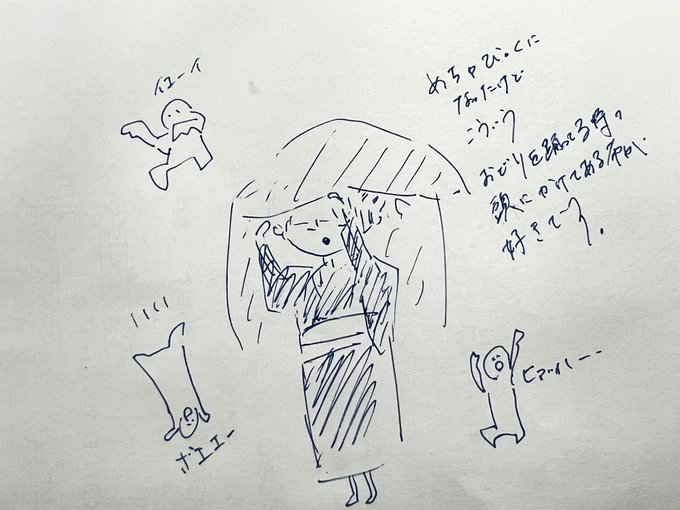 イエーイ
めちゃびっくに
なったけど
こういう
おどりを踊ってる時の
頭にかけてある布が
好きです。
ボエエー
ヒアァルー